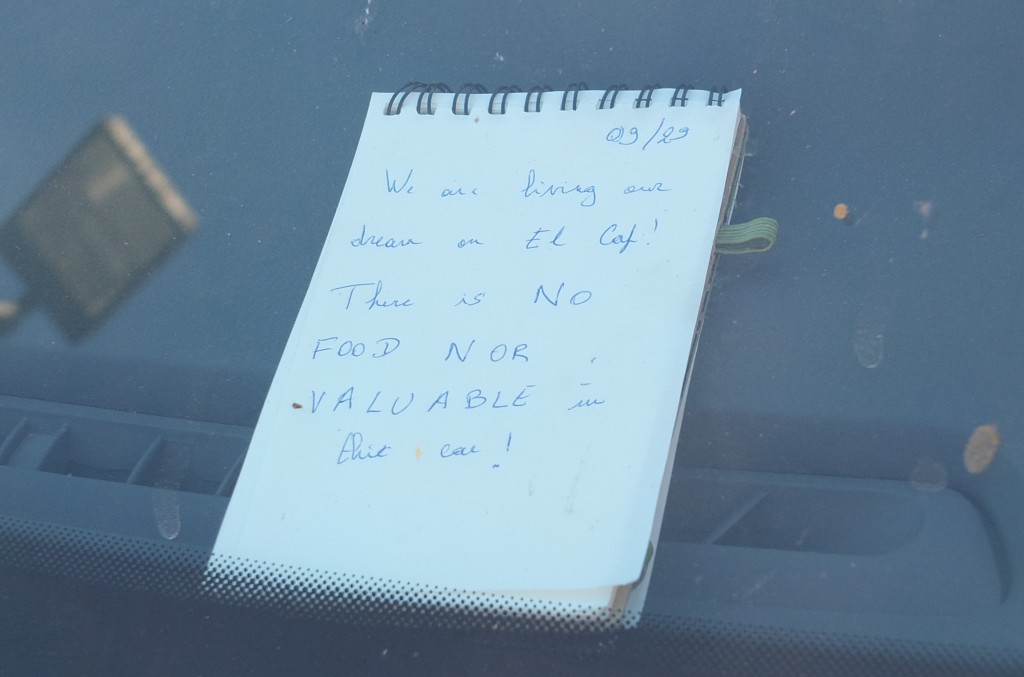 09/29
We are living our
dream on El Cap!
There is NO
FOOD NOR
VALUABLE in
this car!